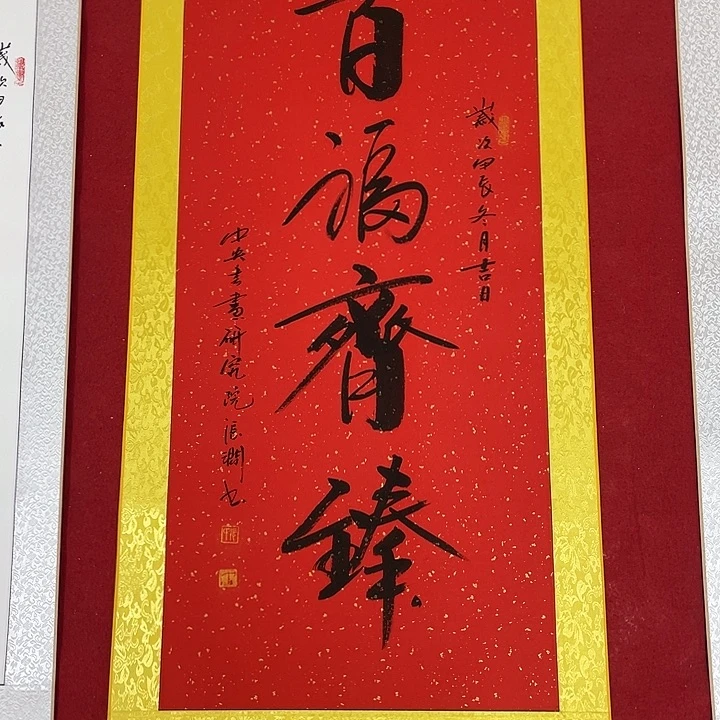 歲次甲辰冬月吉日
百福齊臻
中央書畫研究院張瀾书